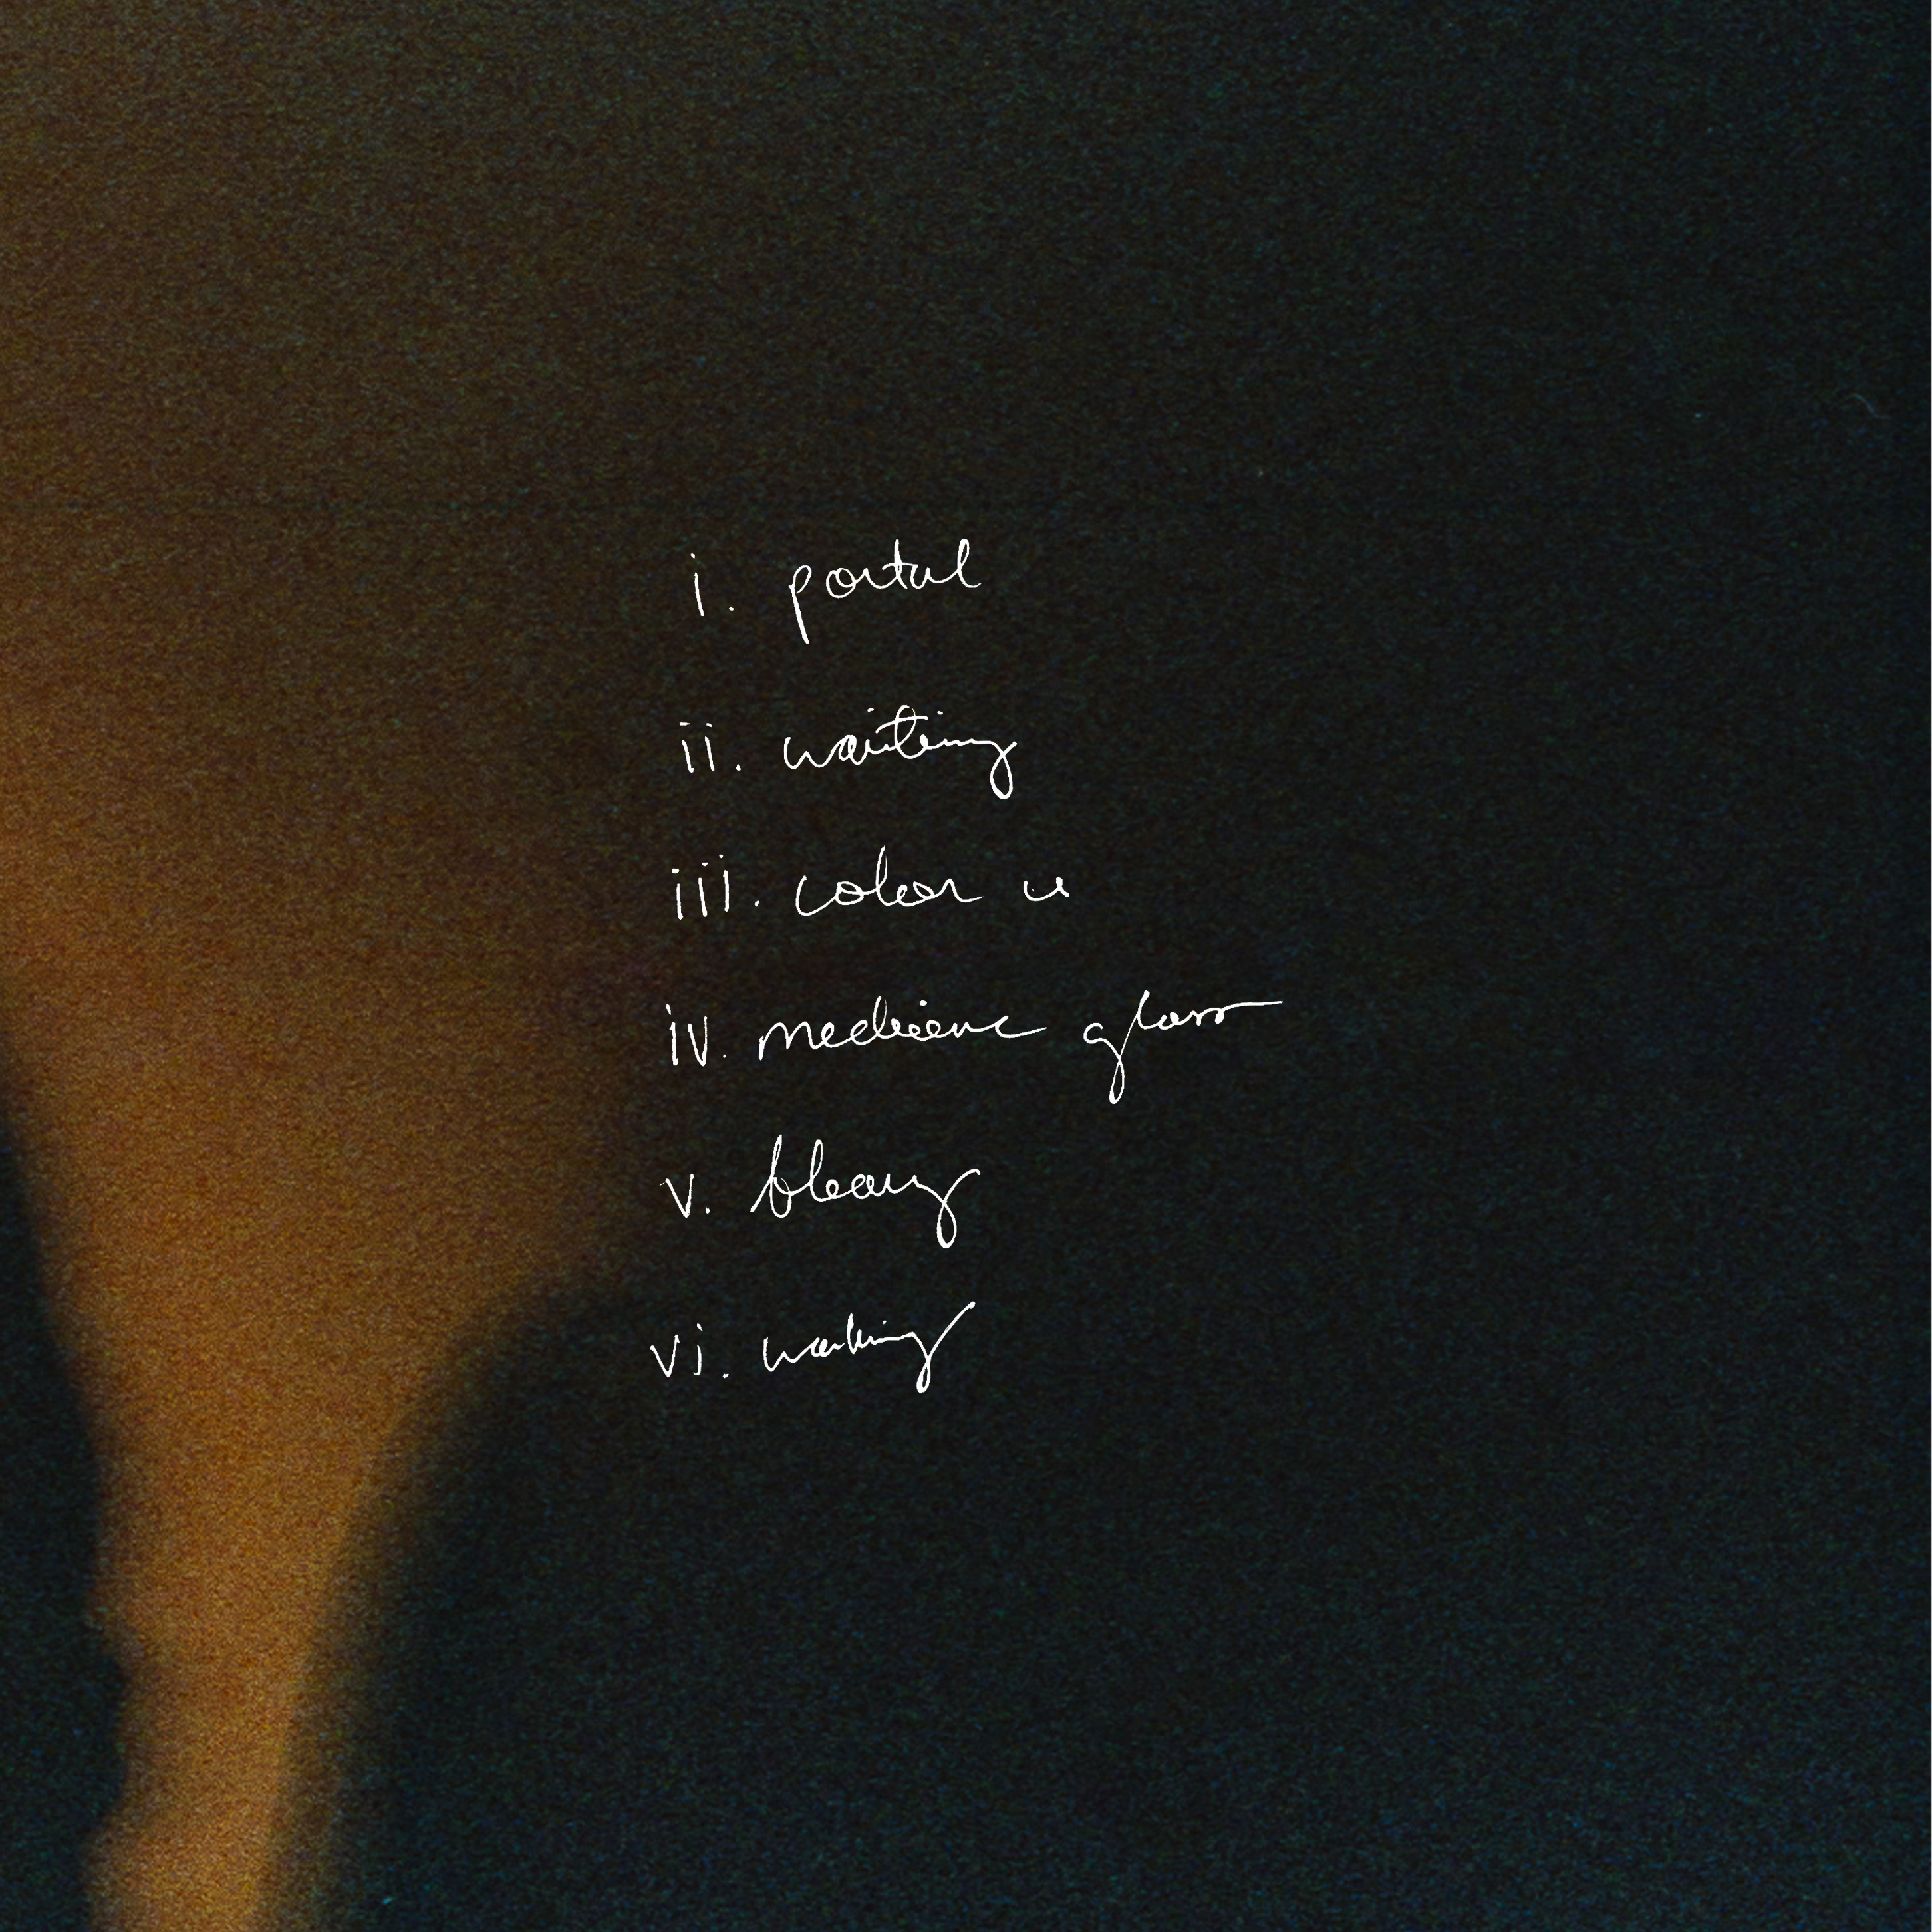 i. portal
ii. waiting
iii. color u
iv. medicine glass
v. bleary
vi. waking